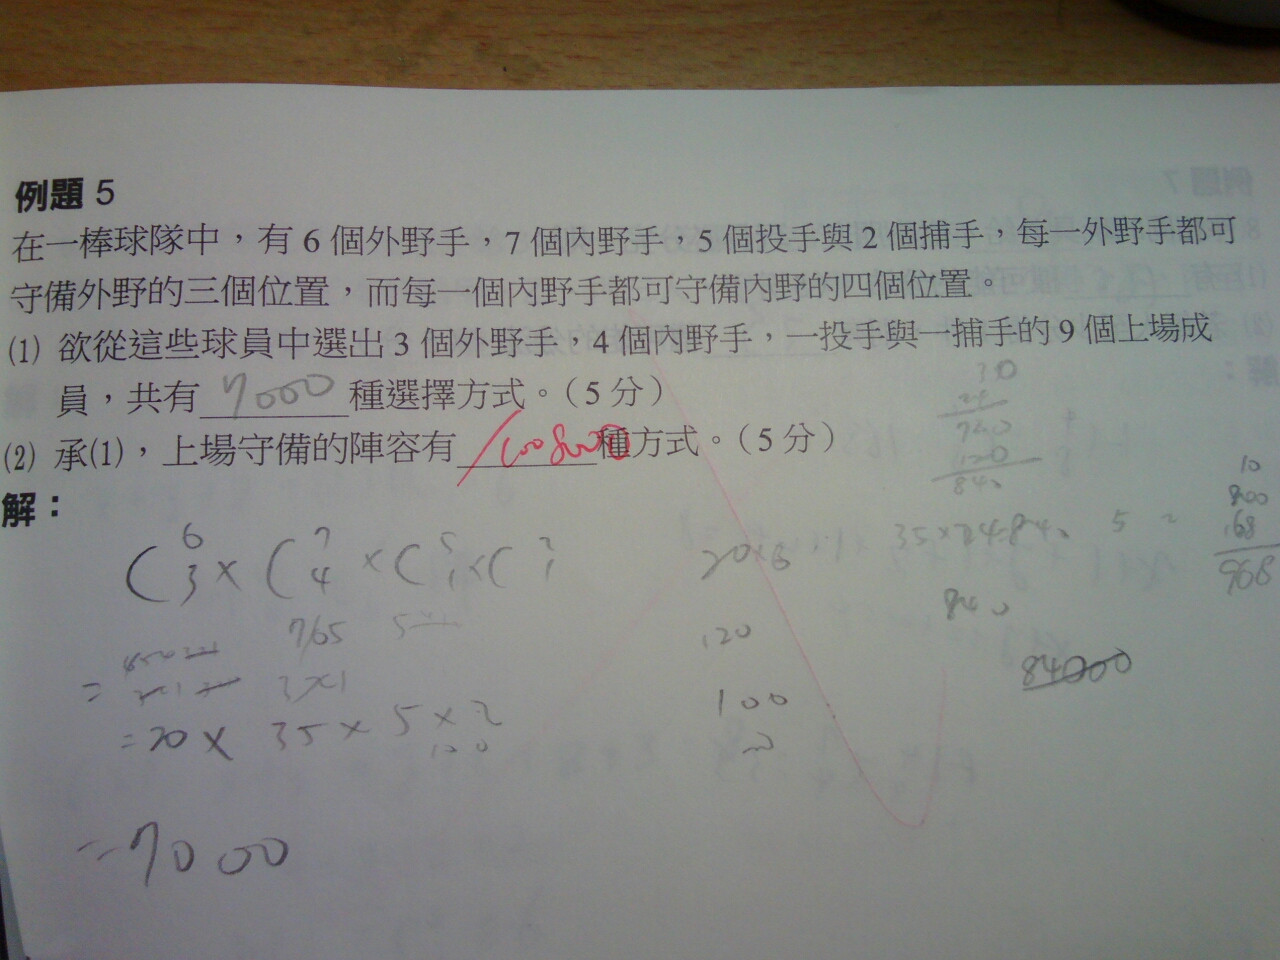 例題 5
在一棒球隊中，有 6 個外野手，7 個內野手，5 個投手與 2 個捕手，每一外野手都可
守備外野的三個位置，而每一個內野手都可守備內野的四個位置。
(1) 欲從這些球員中選出 3 個外野手，4 個內野手，一投手與一捕手的 9 個上場成
員，共有 7000 種選擇方式。（5 分）
(2) 承(1)，上場守備的陣容有 1008000 種方式。（5 分）
解：
C 6 3 × C 7 4 × C 5 1 × C 2 1
765
3×1
= 20 × 35 × 5 × 2
= 7000
20×6
120
100
35×24=840
840
84000
840
800
168
968